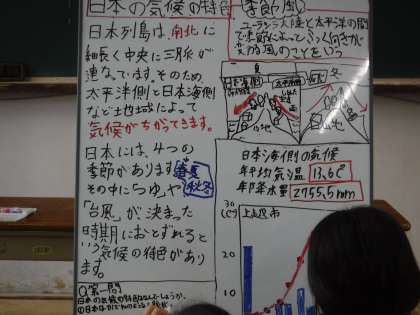 日本の気候の特色
日本列島は、南北に
細長く中央に三脈が
連なっています。そのため、
太平洋側と日本海側
など土地域によって
気候がちがってきます。
日本には、4つの
季節があります 春夏秋冬
その中につゆや
「台風」が決まった
時期におとずれると
いう気候の特色があり
ます。
季節風
ユーラシア大陸と太平洋の間
で季節によってふく向きが
変わる風のことをいう
夏
冬
日本海側の気候
年均気温 13.6℃
年降水量 2755.5mm
上越市
30
(℃)
20
10
Q第一問
日本の気候の特色はなんでしょうか。